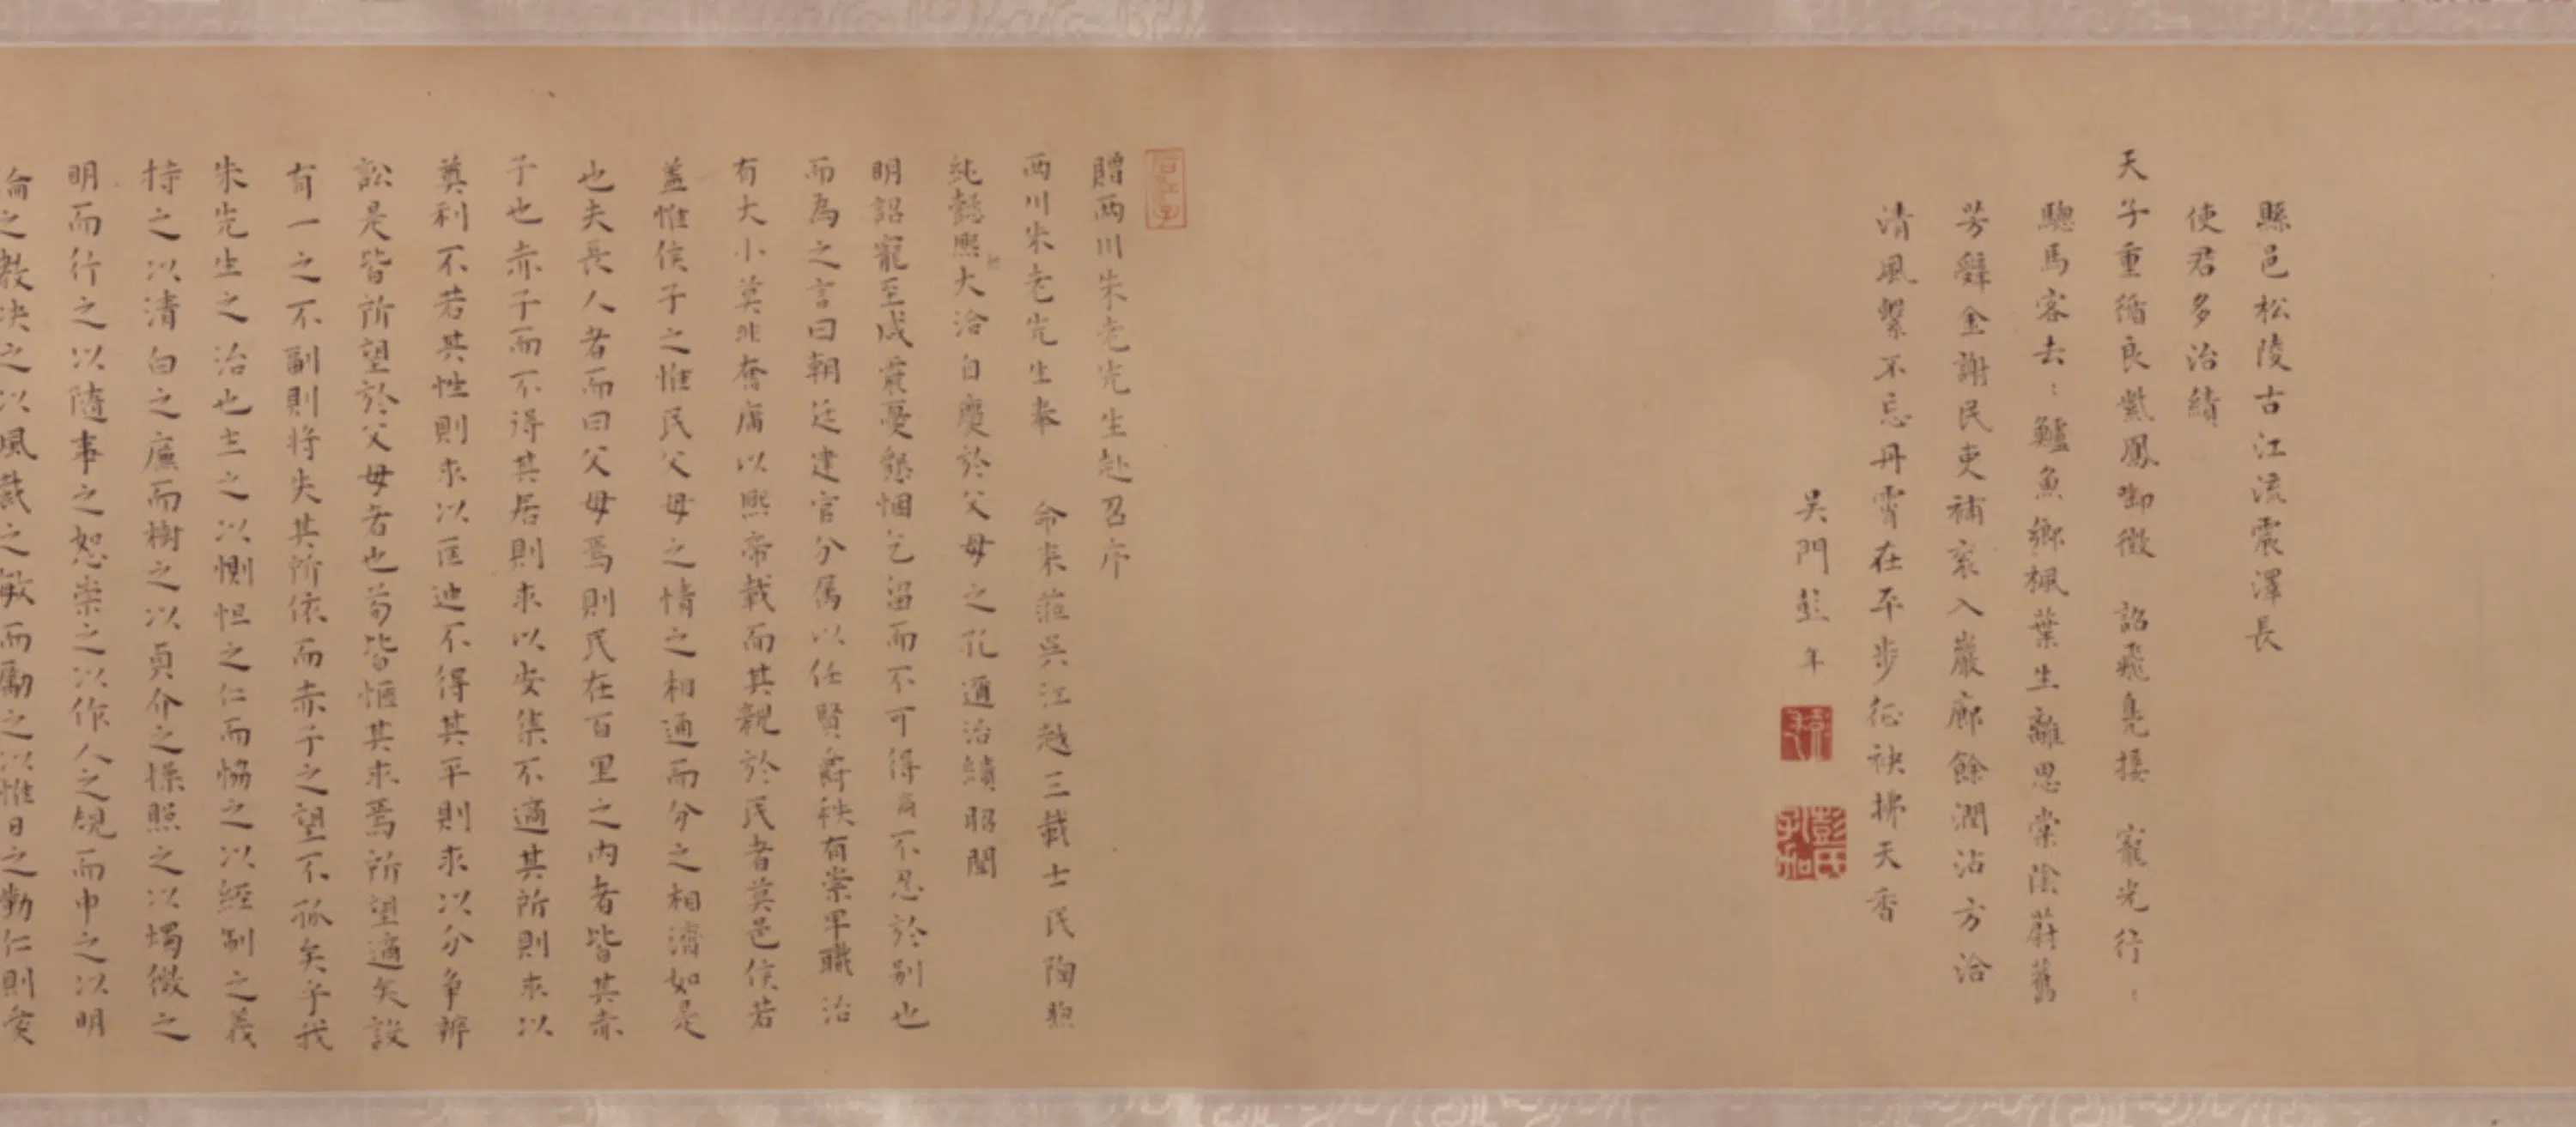 縣邑松陵古江流震澤長
使君多治績
天子重循良紫鳳啣徵 詔飛鳧接 寵光行:
驄馬客去:鱸魚鄉楓葉生離思棠陰蔚舊
芳辭金謝民吏補袞入巖廊餘潤沾方洽
清風繫不忘丹霄在平步征袂拂天香
吳門彭年
彭年
彭氏孔加
贈西川朱老先生赴召序
西川朱老先生奉 命來蒞吳江越三載士民陶煦
純懿熙大洽自慶於父母之孔邇治績昭聞
明詔寵至咸震憂懇悃乞留而不可得爲不忍於别也
而為之言曰朝廷建官分属以任賢爵秩有崇卑職治
有大小莫非奮庸以熙帝載而其親於民者莫邑侯若
盖惟侯子之惟民父母之情之相通而分之相濟如是
也夫長人者而曰父母焉則民在百里之内者皆其赤
子也赤子而不得其居則求以安集不適其所則求以
奠利不若其性則求以匡迪不得其平則求以分争辨
訟是皆所望於父母者也苟皆惬其求焉所望適矣設
有一之不副則将失其所依而赤子之望不孤矣乎我
朱先生之治也主之以惻怛之仁而恊之以經制之義
持之以清白之廉而樹之以貞介之操照之以燭微之
明而行之以隨事之恕崇之以作人之規而申之以明
倫之教决之以風裁之敏而勵之以惟日之勤仁則矣